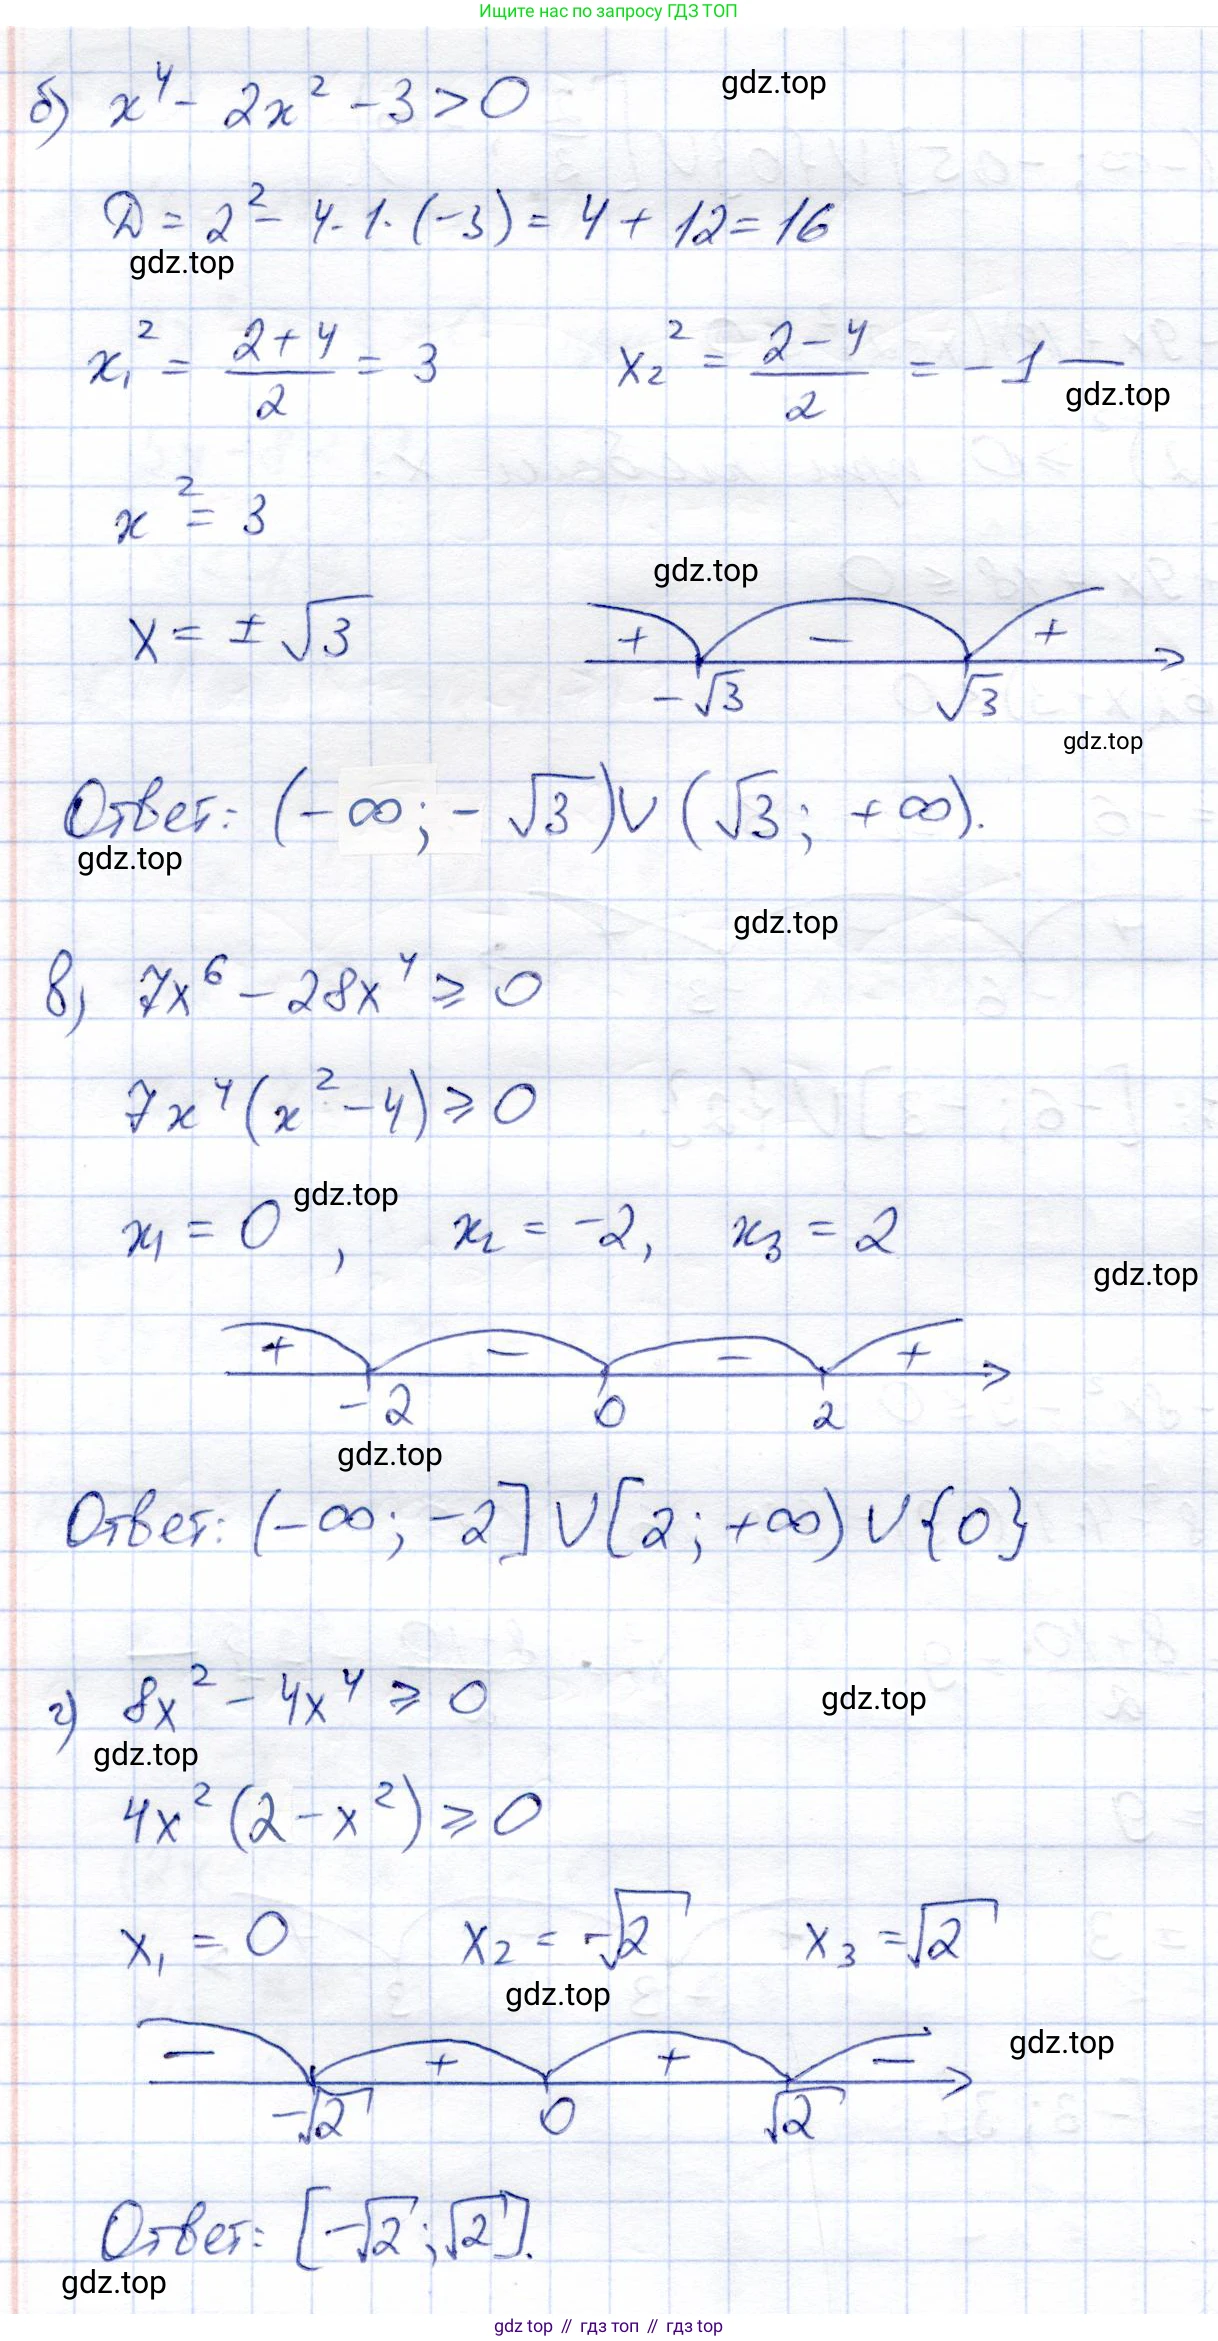 Ищите нас по запросу ГДЗ ТОП
б) x⁴ - 2x² - 3 > 0
gdz.top
D = 2² - 4·1·(-3) = 4 + 12 = 16
gdz.top
x₁² = (2+4)/2 = 3    x₂² = (2-4)/2 = -1 —
gdz.top
x² = 3
gdz.top
x = ± √3
+ − +
-√3 √3
gdz.top
Ответ: (-∞; -√3) ∪ (√3; +∞).
gdz.top
gdz.top
в) 7x⁶ - 28x⁴ ⩾ 0
7x⁴(x² - 4) ⩾ 0
gdz.top
x₁ = 0, x₂ = -2, x₃ = 2
gdz.top
+ − − +
-2 0 2
gdz.top
Ответ: (-∞; -2] ∪ [2; +∞) ∪ {0}
г) 8x² - 4x⁴ ⩾ 0
gdz.top
gdz.top
4x²(2 - x²) ⩾ 0
x₁ = 0 x₂ = -√2 x₃ = √2
gdz.top
− + + −
gdz.top
-√2 0 √2
Ответ: [-√2; √2].
gdz.top
gdz top // гдз топ // гдз top